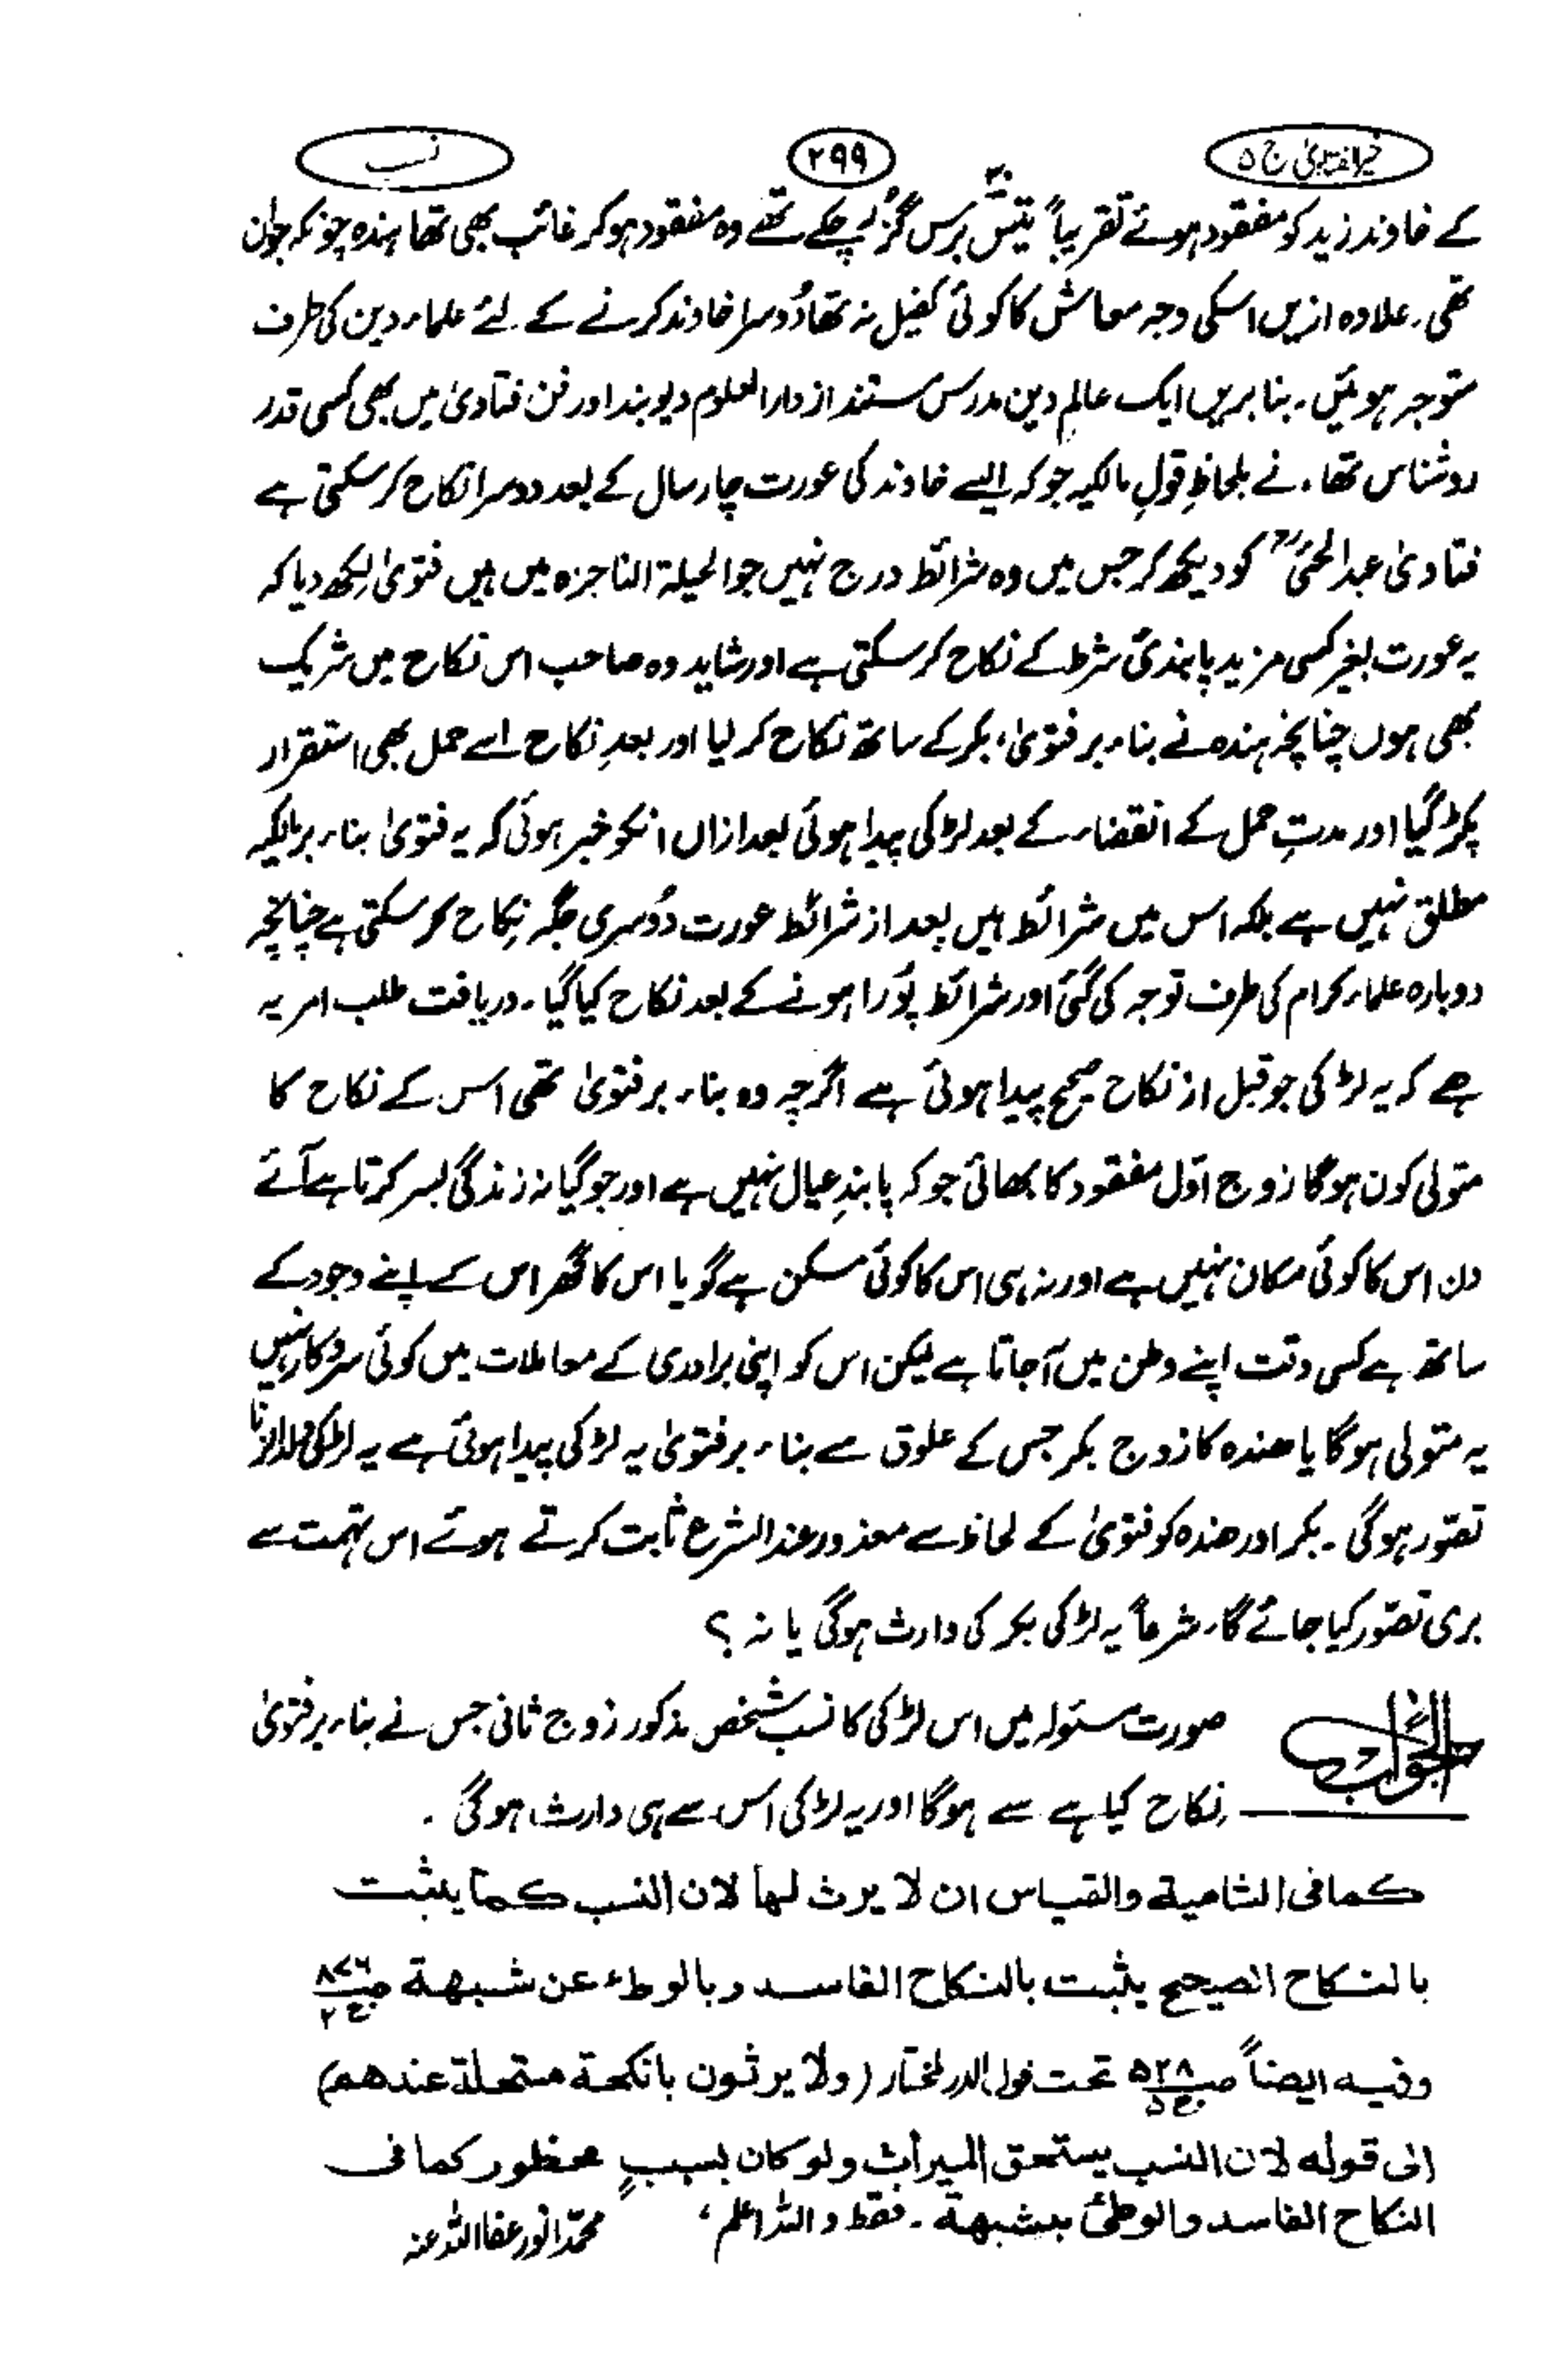 خیر الفتاویٰ ج ۵
۲۹۹
نسب
کے خاوند زید کو مفقود ہوئے تقریباً تیس ۳۰ برس گزر چکے تھے وہ مفقود ہو کر غائب بھی تھا ہندہ چونکہ جوان
تھی۔ علاوہ ازیں اسکی وجہ معاش کا کوئی کفیل نہ تھا دُوسرا خاوند کرنے کے لئے علماء دین کی طرف
متوجہ ہوئیں۔ بنا بریں ایک عالم دین مدرس مستند از دارالعلوم دیوبند اور فن فتاویٰ میں بھی کسی قدر
روشناس تھا۔ نے بلحاظِ قولِ مالکیہ جو کہ ایسے خاوند کی عورت چار سال کے بعد دوسرا نکاح کر سکتی ہے
فتاویٰ عبدالحئیؒ کو دیکھ کر جس میں وہ شرائط درج نہیں جو الحیلۃ الناجزہ میں ہیں فتویٰ لکھ دیا کہ
یہ عورت بغیر کسی مزید پابندیٔ شرط کے نکاح کر سکتی ہے اور شاید وہ صاحب اس نکاح میں شریک
بھی ہوں چنانچہ ہندہ نے بناء بر فتویٰ، بکر کے ساتھ نکاح کر لیا اور بعدِ نکاح اسے حمل بھی استقرار
پکڑ گیا اور مدتِ حمل کے انقضاء کے بعد لڑکی پیدا ہوئی بعد ازاں انکو خبر ہوئی کہ یہ فتویٰ بناء بر مالکیہ
مطلق نہیں ہے بلکہ اس میں شرائط ہیں بعد از شرائط عورت دُوسری جگہ نکاح کر سکتی ہے چنانچہ
دوبارہ علماء کرام کی طرف توجہ کی گئی اور شرائط پُورا ہونے کے بعد نکاح کیا گیا۔ دریافت طلب امر یہ
ہے کہ یہ لڑکی جو قبل از نکاح صحیح پیدا ہوئی ہے اگرچہ وہ بناء بر فتویٰ تھی اس کے نکاح کا
متولی کون ہوگا زوج اوّل مفقود کا بھائی جو کہ پابندِ عیال نہیں ہے اور جوگیانہ زندگی بسر کرتا ہے آئے
دن اس کا کوئی مکان نہیں ہے اور نہ ہی اس کا کوئی مسکن ہے گویا اس کا گھر اس کے اپنے وجود کے
ساتھ ہے کسی وقت اپنے وطن میں آجاتا ہے لیکن اس کو اپنی برادری کے معاملات میں کوئی سروکار نہیں
یہ متولی ہوگا یا ھندہ کا زوج بکر جس کے علوق سے بناء بر فتویٰ یہ لڑکی پیدا ہوئی ہے یہ لڑکی ولد الزنا
تصّور ہوگی۔ بکر اور ھندہ کو فتویٰ کے لحاظ سے معذور عند الشرع ثابت کرتے ہوئے اس تہمت سے
بری تصّور کیا جائے گا۔ شرعاً یہ لڑکی بکر کی وارث ہوگی یا نہ ؟
الجواب
صورت مسئولہ میں اس لڑکی کا نسب شخص مذکور زوج ثانی جس نے بناء بر فتویٰ
نکاح کیا ہے سے ہوگا اور یہ لڑکی اس سے ہی وارث ہوگی ۔
کما فی الشامیة والقیاس ان لا یرث لها لان النسب کما یثبت
بالنکاح الصحیح یثبت بالنکاح الفاسد و بالوطء عن شبهة ص۸۷۶ ج۲
وفیه ایضاً ص۵۲۸ ج۵ تحت قول الدر المختار (ولا یرثون بانکحة مستحلة عندهم)
الی قوله لان النسب یستحق المیراث ولو کان بسببٍ محظور کما فی
النکاح الفاسد والوطئ بشبهة ۔ فقط واللہ اعلم ،
محمّد انور عفا اللہ عنہ